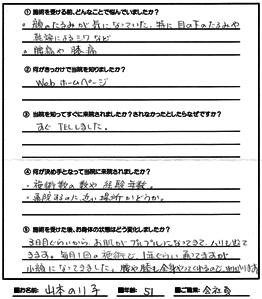 ① 施術を受ける前、どんなことで悩んでいましたか?
・顔のたるみが気になっていた。特に目の下のたるみや
乾燥によるシワなど
・腰痛や膝痛
② 何がきっかけで当院を知りましたか?
Webホームページ
③ 当院を知ってすぐに来院されましたか?されなかったとしたらなぜですか?
すぐTELしました。
④ 何が決め手となって当院に来院されましたか?
・施術数の数や経験年数。
・通院するのに近い場所かどうか。
⑤ 施術を受けた後、お身体の状態はどう変化しましたか?
3日目ぐらいから、お肌がプルプルになってきて、ハリも出て
きます。毎月1回の施術と、1年ぐらい通ってますが
小顔になってきました。腰や膝も全身やってくれるので
■お名前: 山本のり子 ■年齢: 51 ■ご職業: 会社員